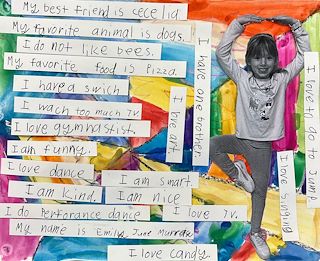 My best friend is cecelia
My favorite animal is dogs.
I do not like bees.
My favorite food is pizza.
I have a swich
I wach too much TV.
I love gymnastist.
I am funny.
I love dance
I am smart.
I am kind.
I am nice
I do perforance dance
I love TV.
My name is Emily June
I love candy.
I love art
I have one brother.
I love singing
I love to go to